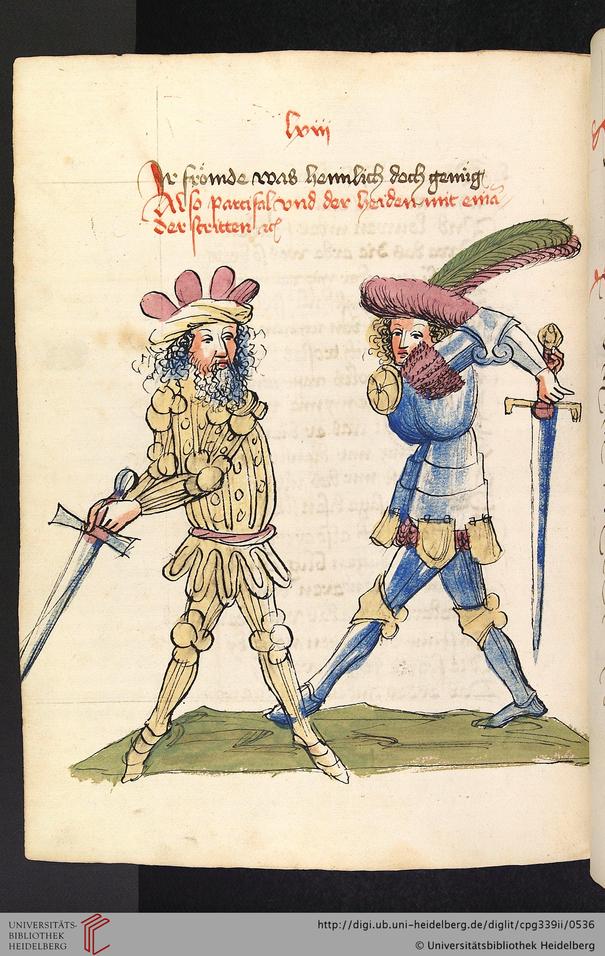 lxiii
Ir frömde was heimlich doch genug
Also partifal vnd der heiden mit eina
der stritten
UNIVERSITÄTS-
BIBLIOTHEK
HEIDELBERG
http://digi.ub.uni-heidelberg.de/diglit/cpg339ii/0536
© Universitätsbibliothek Heidelberg